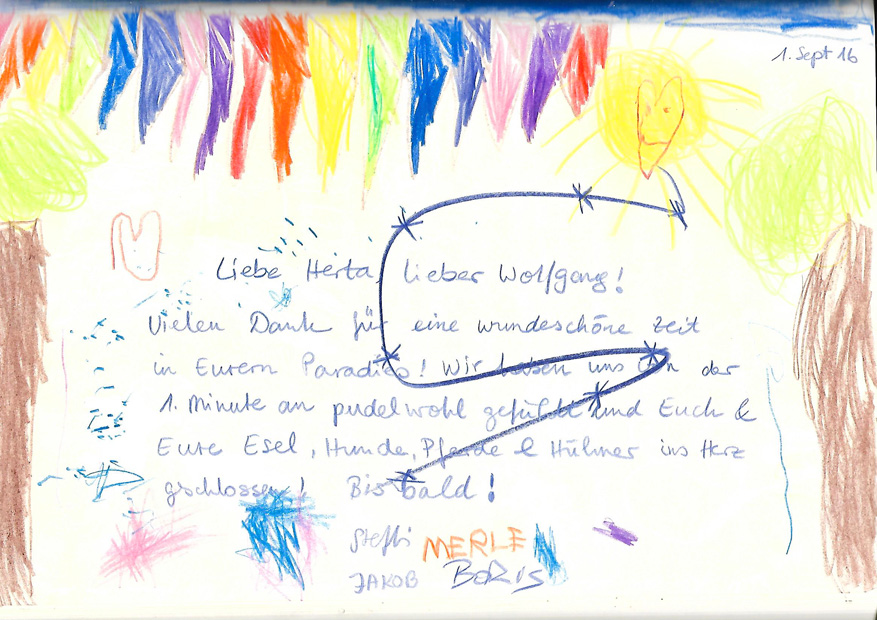 1. Sept 16
Liebe Herta, lieber Wolfgang!
Vielen Dank für eine wundeschöne Zeit
in Eurem Paradies! Wir haben uns von der
1. Minute an pudelwohl gefühlt und Euch &
Eure Esel, Hunde, Pferde & Hühner ins Herz
gschlossen! Bis bald!
Steffi MERLE
JAKOB BORIS